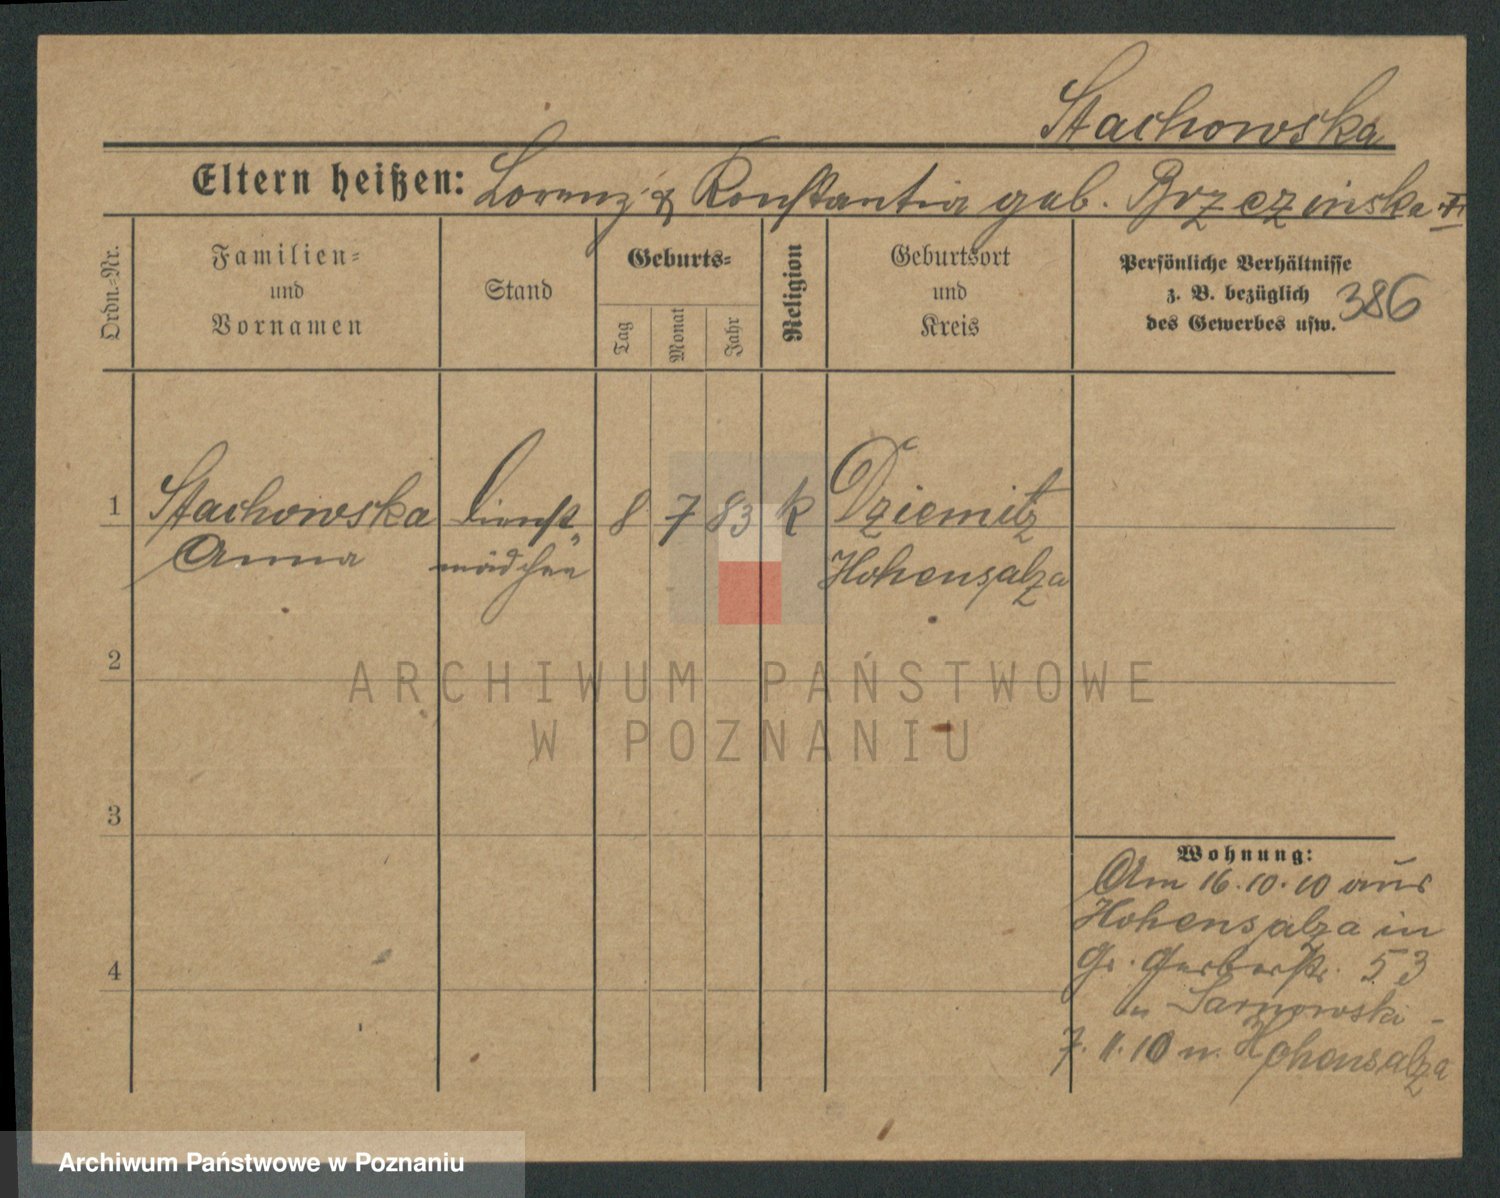 Stachowska
Eltern heißen: Lorenz & Konstantia geb. Brzezinska
Ordn.-Nr.
Familien-
und
Vornamen
Stand
Geburts-
Tag
Monat
Jahr
Religion
Geburtsort
und
Kreis
Persönliche Verhältnisse
z. B. bezüglich
des Gewerbes usw.
386
1 Stachowska Dienst- 8 7 83 k Dziemitz
Anna mädchen Hohensalza
2
3
4
Wohnung:
Am 16.10.10 aus
Hohensalza in
Gr. Gerberstr. 53
Sarnowski -
7.11.10 n. Hohensalza
ARCHIWUM PAŃSTWOWE
W POZNANIU
Archiwum Państwowe w Poznaniu